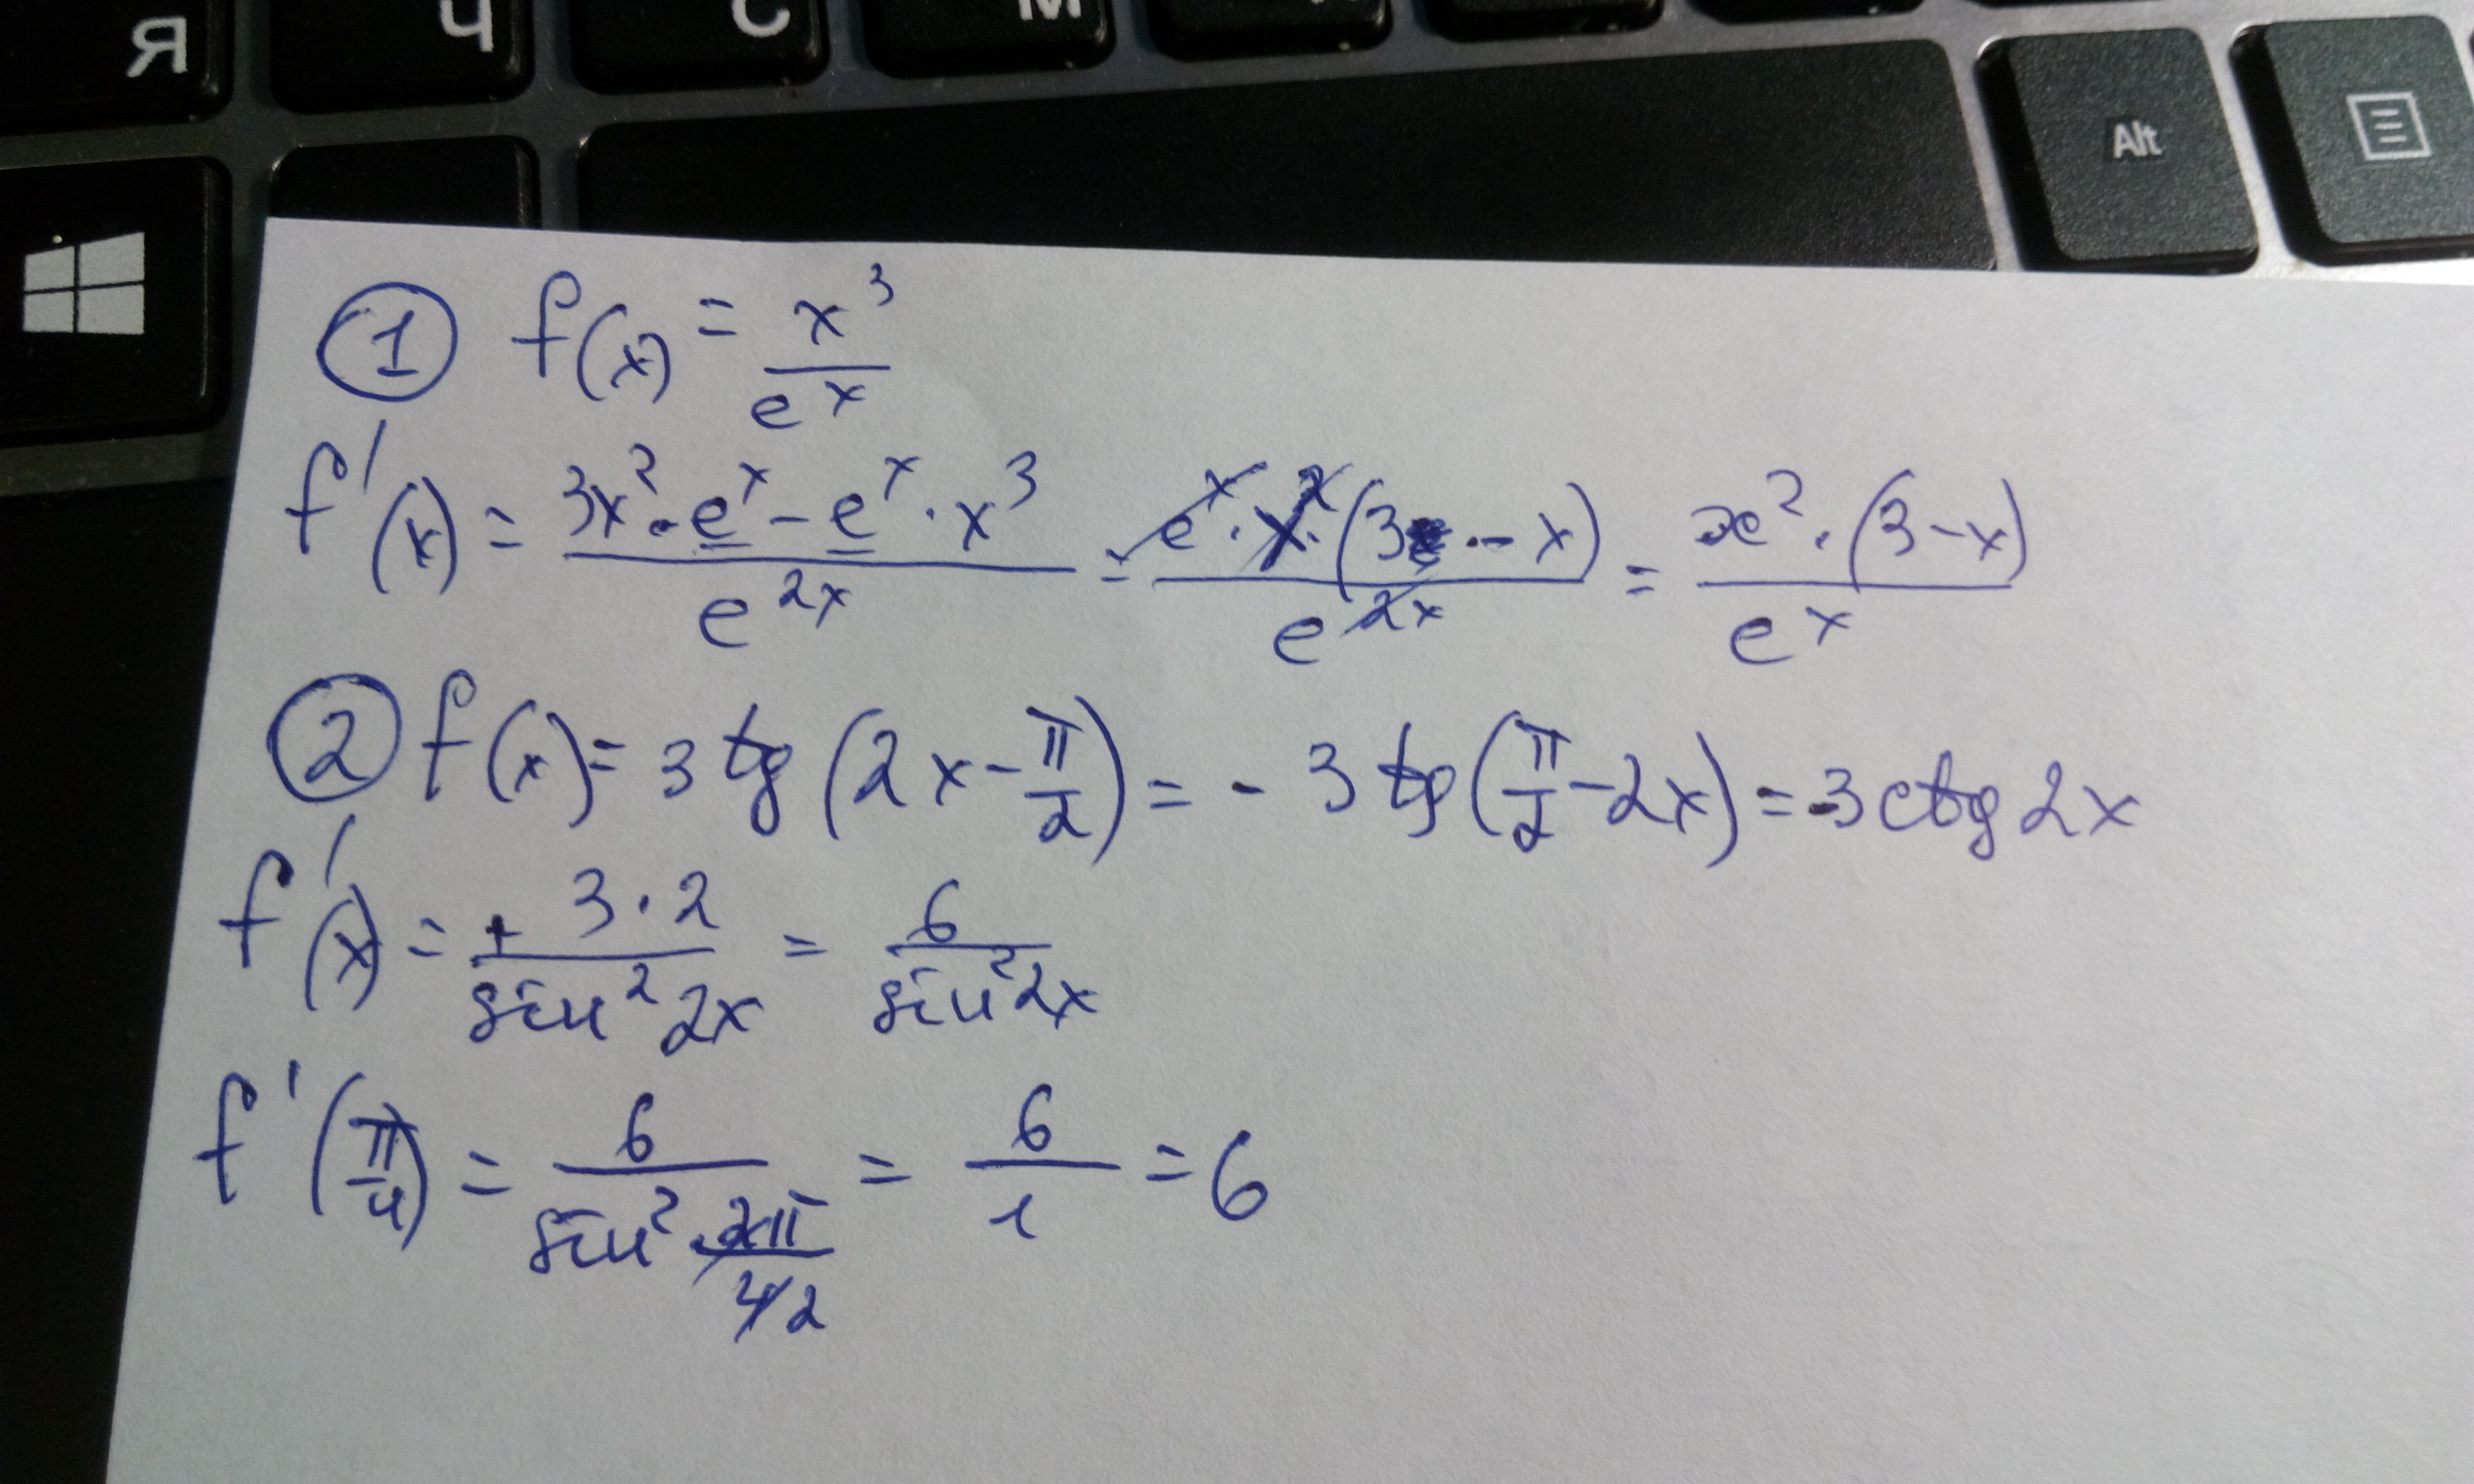 Я Ч С М
Alt
① f(x) = x³/eˣ
f'(x) = (3x² · eˣ − eˣ · x³)/e²ˣ = (eˣ · x² · (3 · − x))/e²ˣ = (x² · (3 − x))/eˣ
② f(x) = 3 tg (2x − π/2) = − 3 tg (π/2 − 2x) = −3 ctg 2x
f'(x) = (+ 3 · 2)/(sin² 2x) = 6/(sin² 2x)
f'(π/4) = 6/(sin² 2π/4/2) = 6/1 = 6